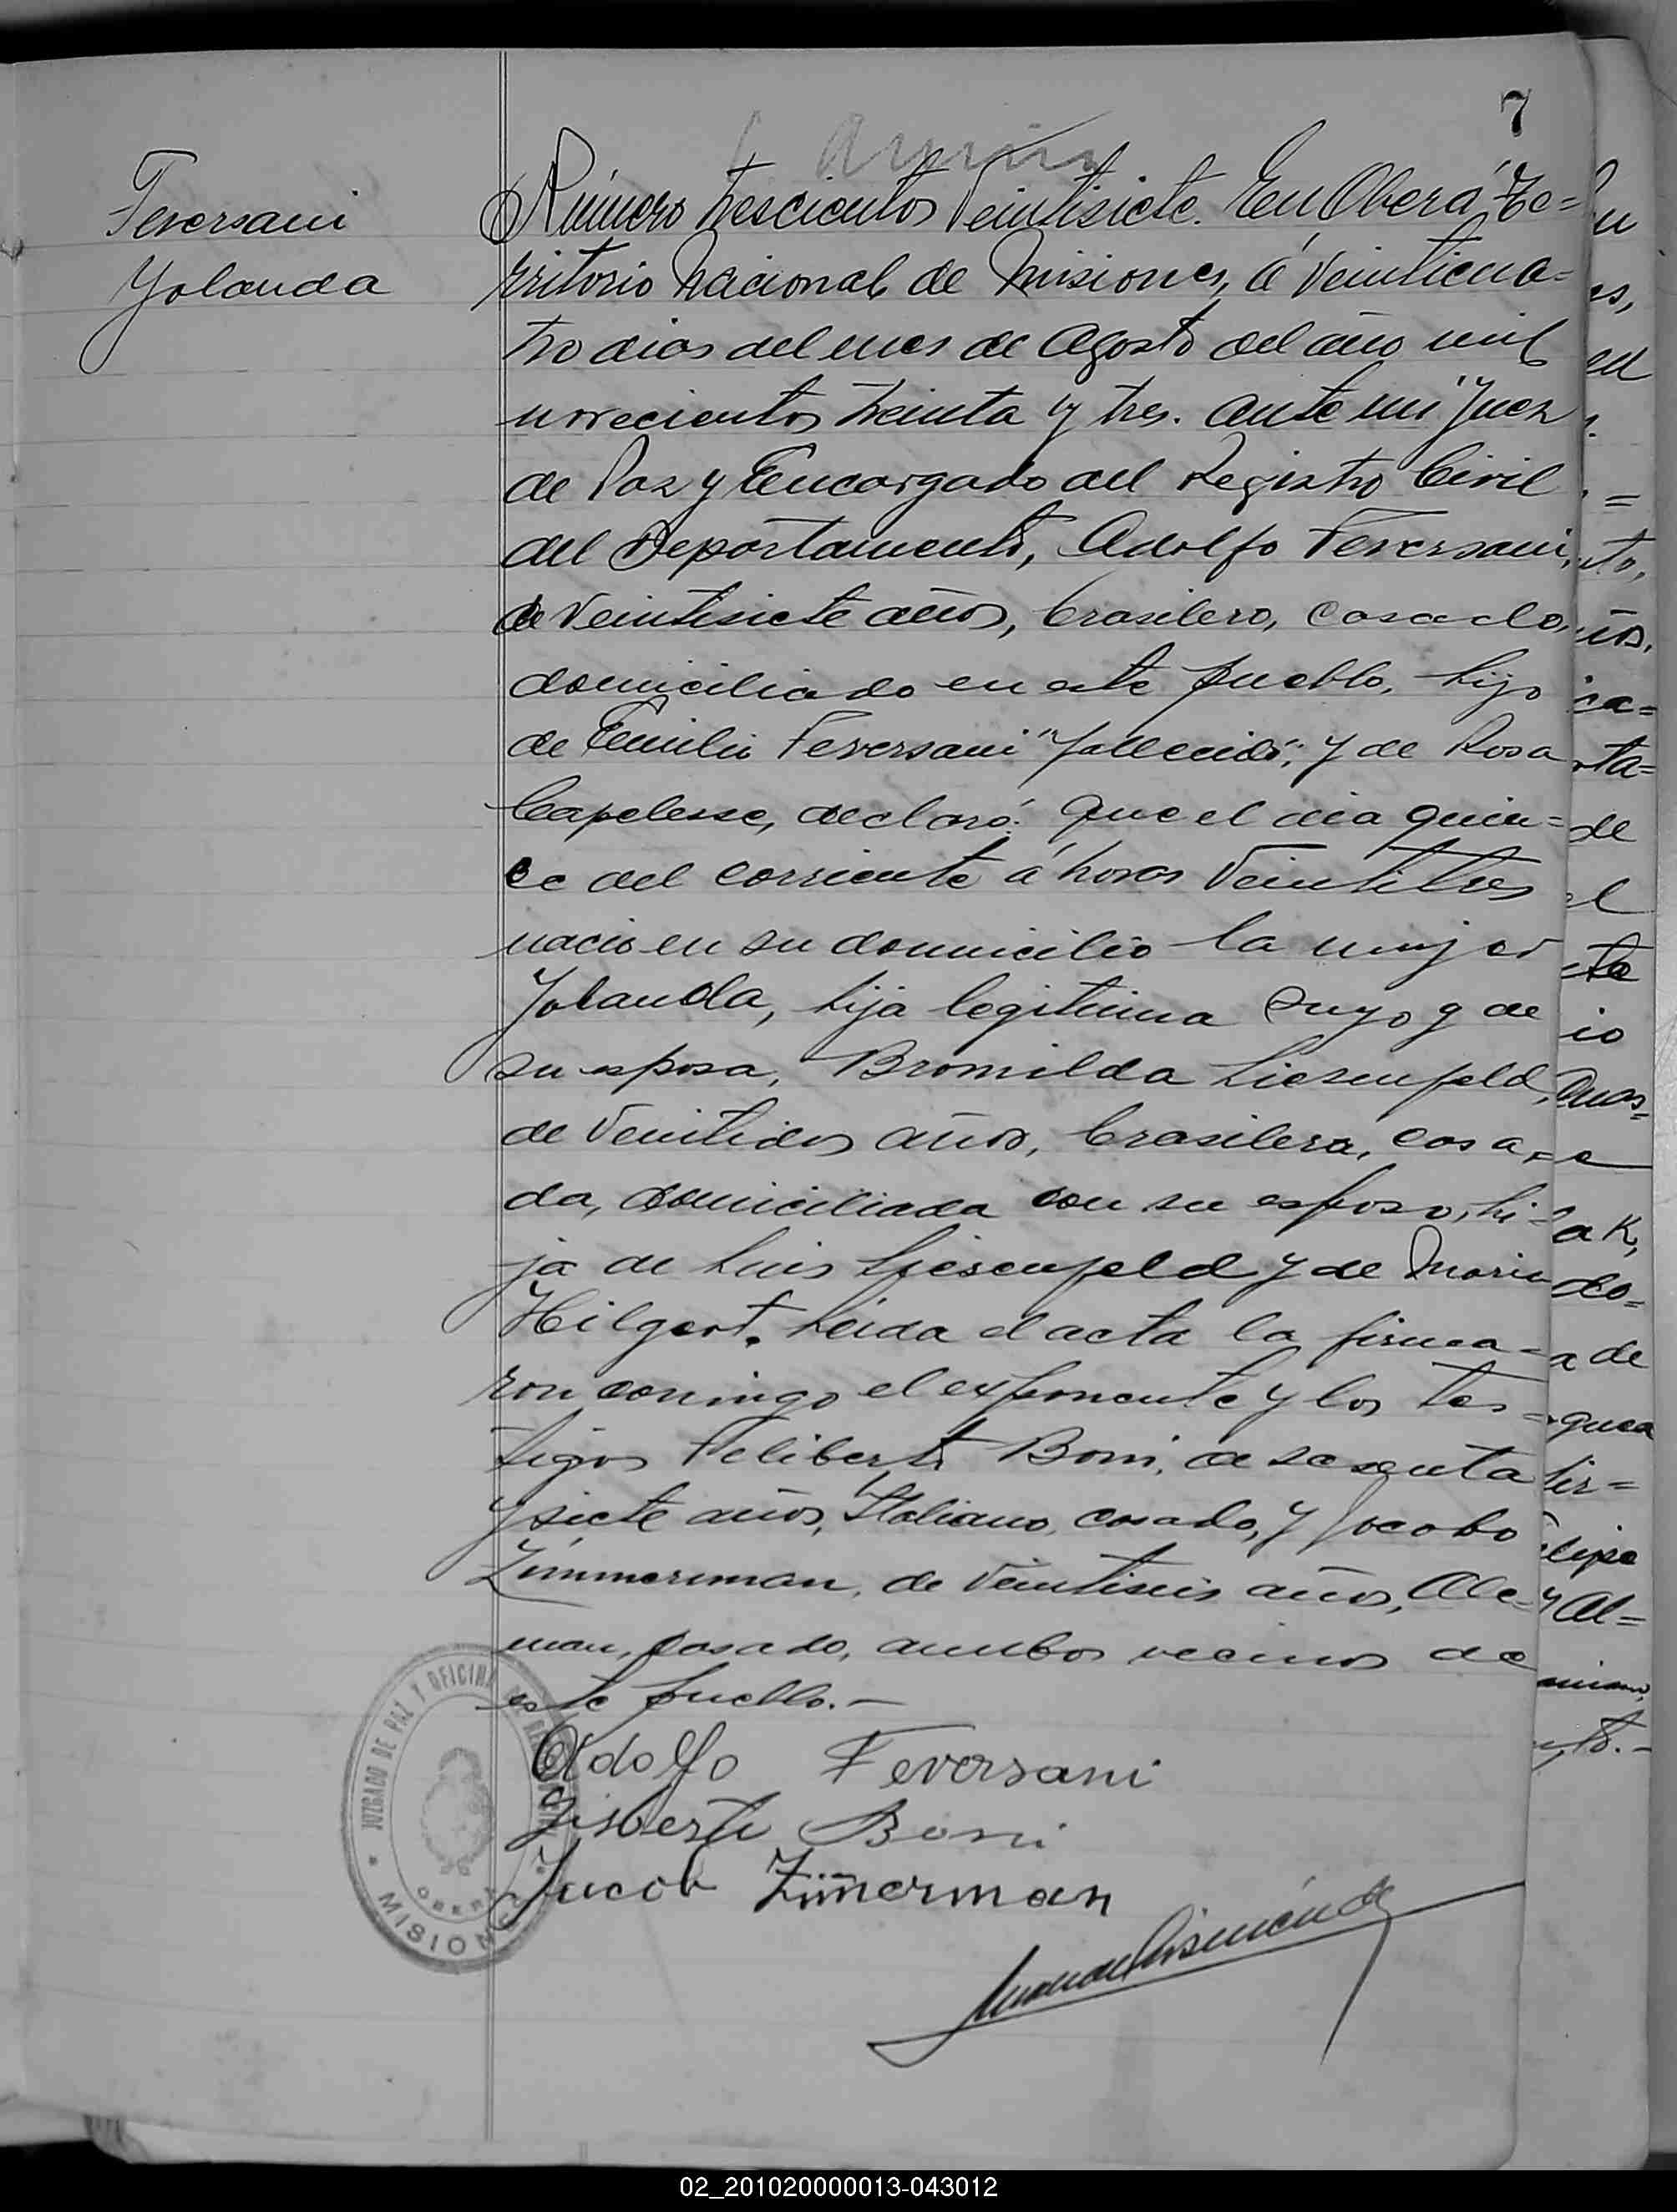 7
Feversani
Yolanda
Número trescientos Veintisiete. En Oberá, Te=
rritorio Nacional de Misiones, á Veinticua=
tro dias del mes de Agosto del año mil
novecientos treinta y tres. Ante mi Juez
de Paz y Encargado del Registro Civil
del Departamento, Adolfo Feversani,
de Veintisiete años, brasilero, casado,
domiciliado en este pueblo, hijo
de Emilio Feversani "fallecido", y de Rosa
Capelesse, declaró: Que el dia quin=
ce del corriente á horas Veintitres
nacio en su domicilio la mujer
Yolanda, hija legitima suya y de
su esposa, Bromilda Liesenfeld,
de Veintidos años, brasilera, casa=
da, domiciliada con su esposo, hi=
ja de Luis Liesenfeld y de Maria
Hilgert. Leida el acta la firma=
ron conmigo el exponente y los tes=
tigos Feliberto Boni, de sesenta
y siete años, Italiano, casado, y Jacobo
Zimmerman, de Veintiseis años, Ale=
man, casado, ambos vecinos de
este pueblo.-
Adolfo Feversani
Boni
Jacob Zimerman
JUZGADO DE PAZ Y OFICINA DE
OBERA
MISIONES
02_201020000013-043012